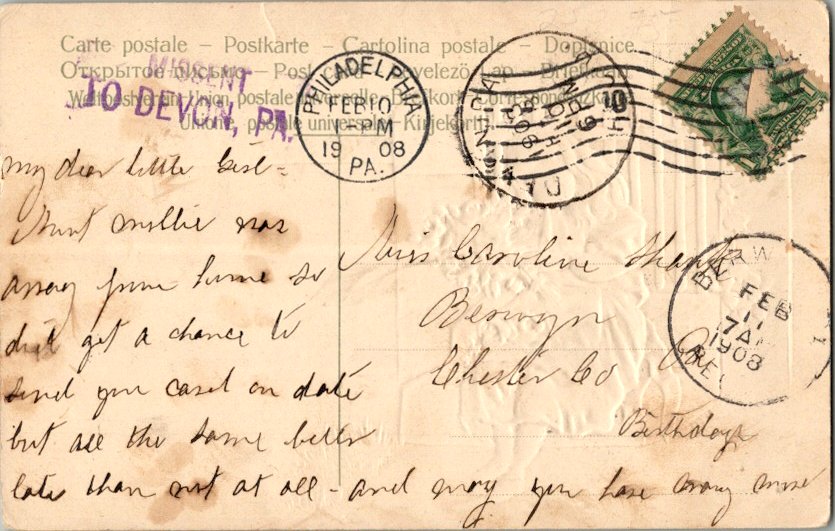 Carte postale – Postkarte – Cartolina postale – Dopisnice
Открытое письмо – Post card – Levelező-Lap – Briefkort
Weltpostverein Union postale universelle Brefkort Correspondenzkarte
Union postale universelle Kirjekortti
MISSENT
TO DEVON, PA.
PHILADELPHIA
FEB 10
1-PM
1908
PA.
10
BERWYN
FEB
11
7 AM
1908
REC'
My dear little Girl –
Aunt Millie was
away from home so
did get a chance to
send you card on date
but all the same better
late than not at all – and may you have many more
Birthdays
Miss Caroline
Berwyn
Chester Co Pa